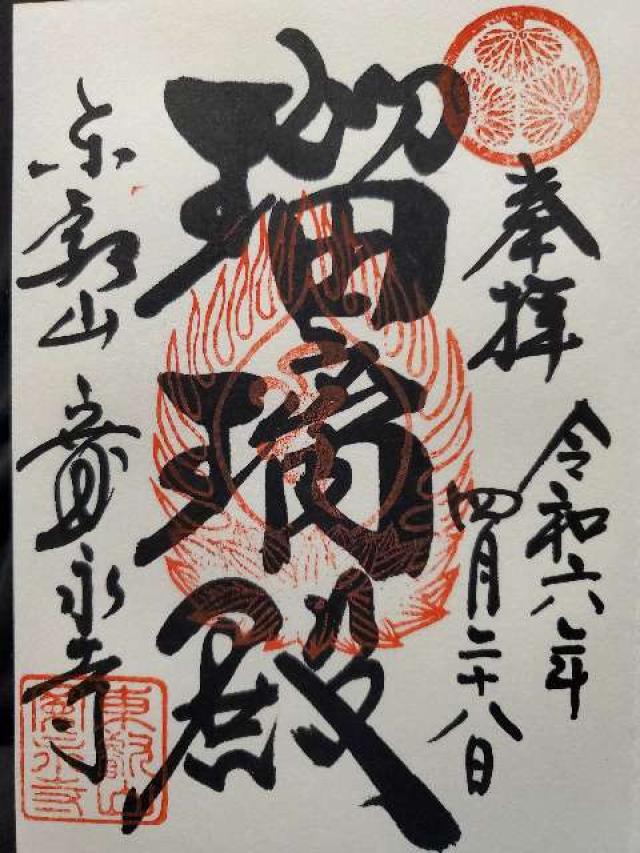 奉拝
令和六年
四月二十八日
瑠璃殿
東叡山 寛永寺
東叡山
寛永寺